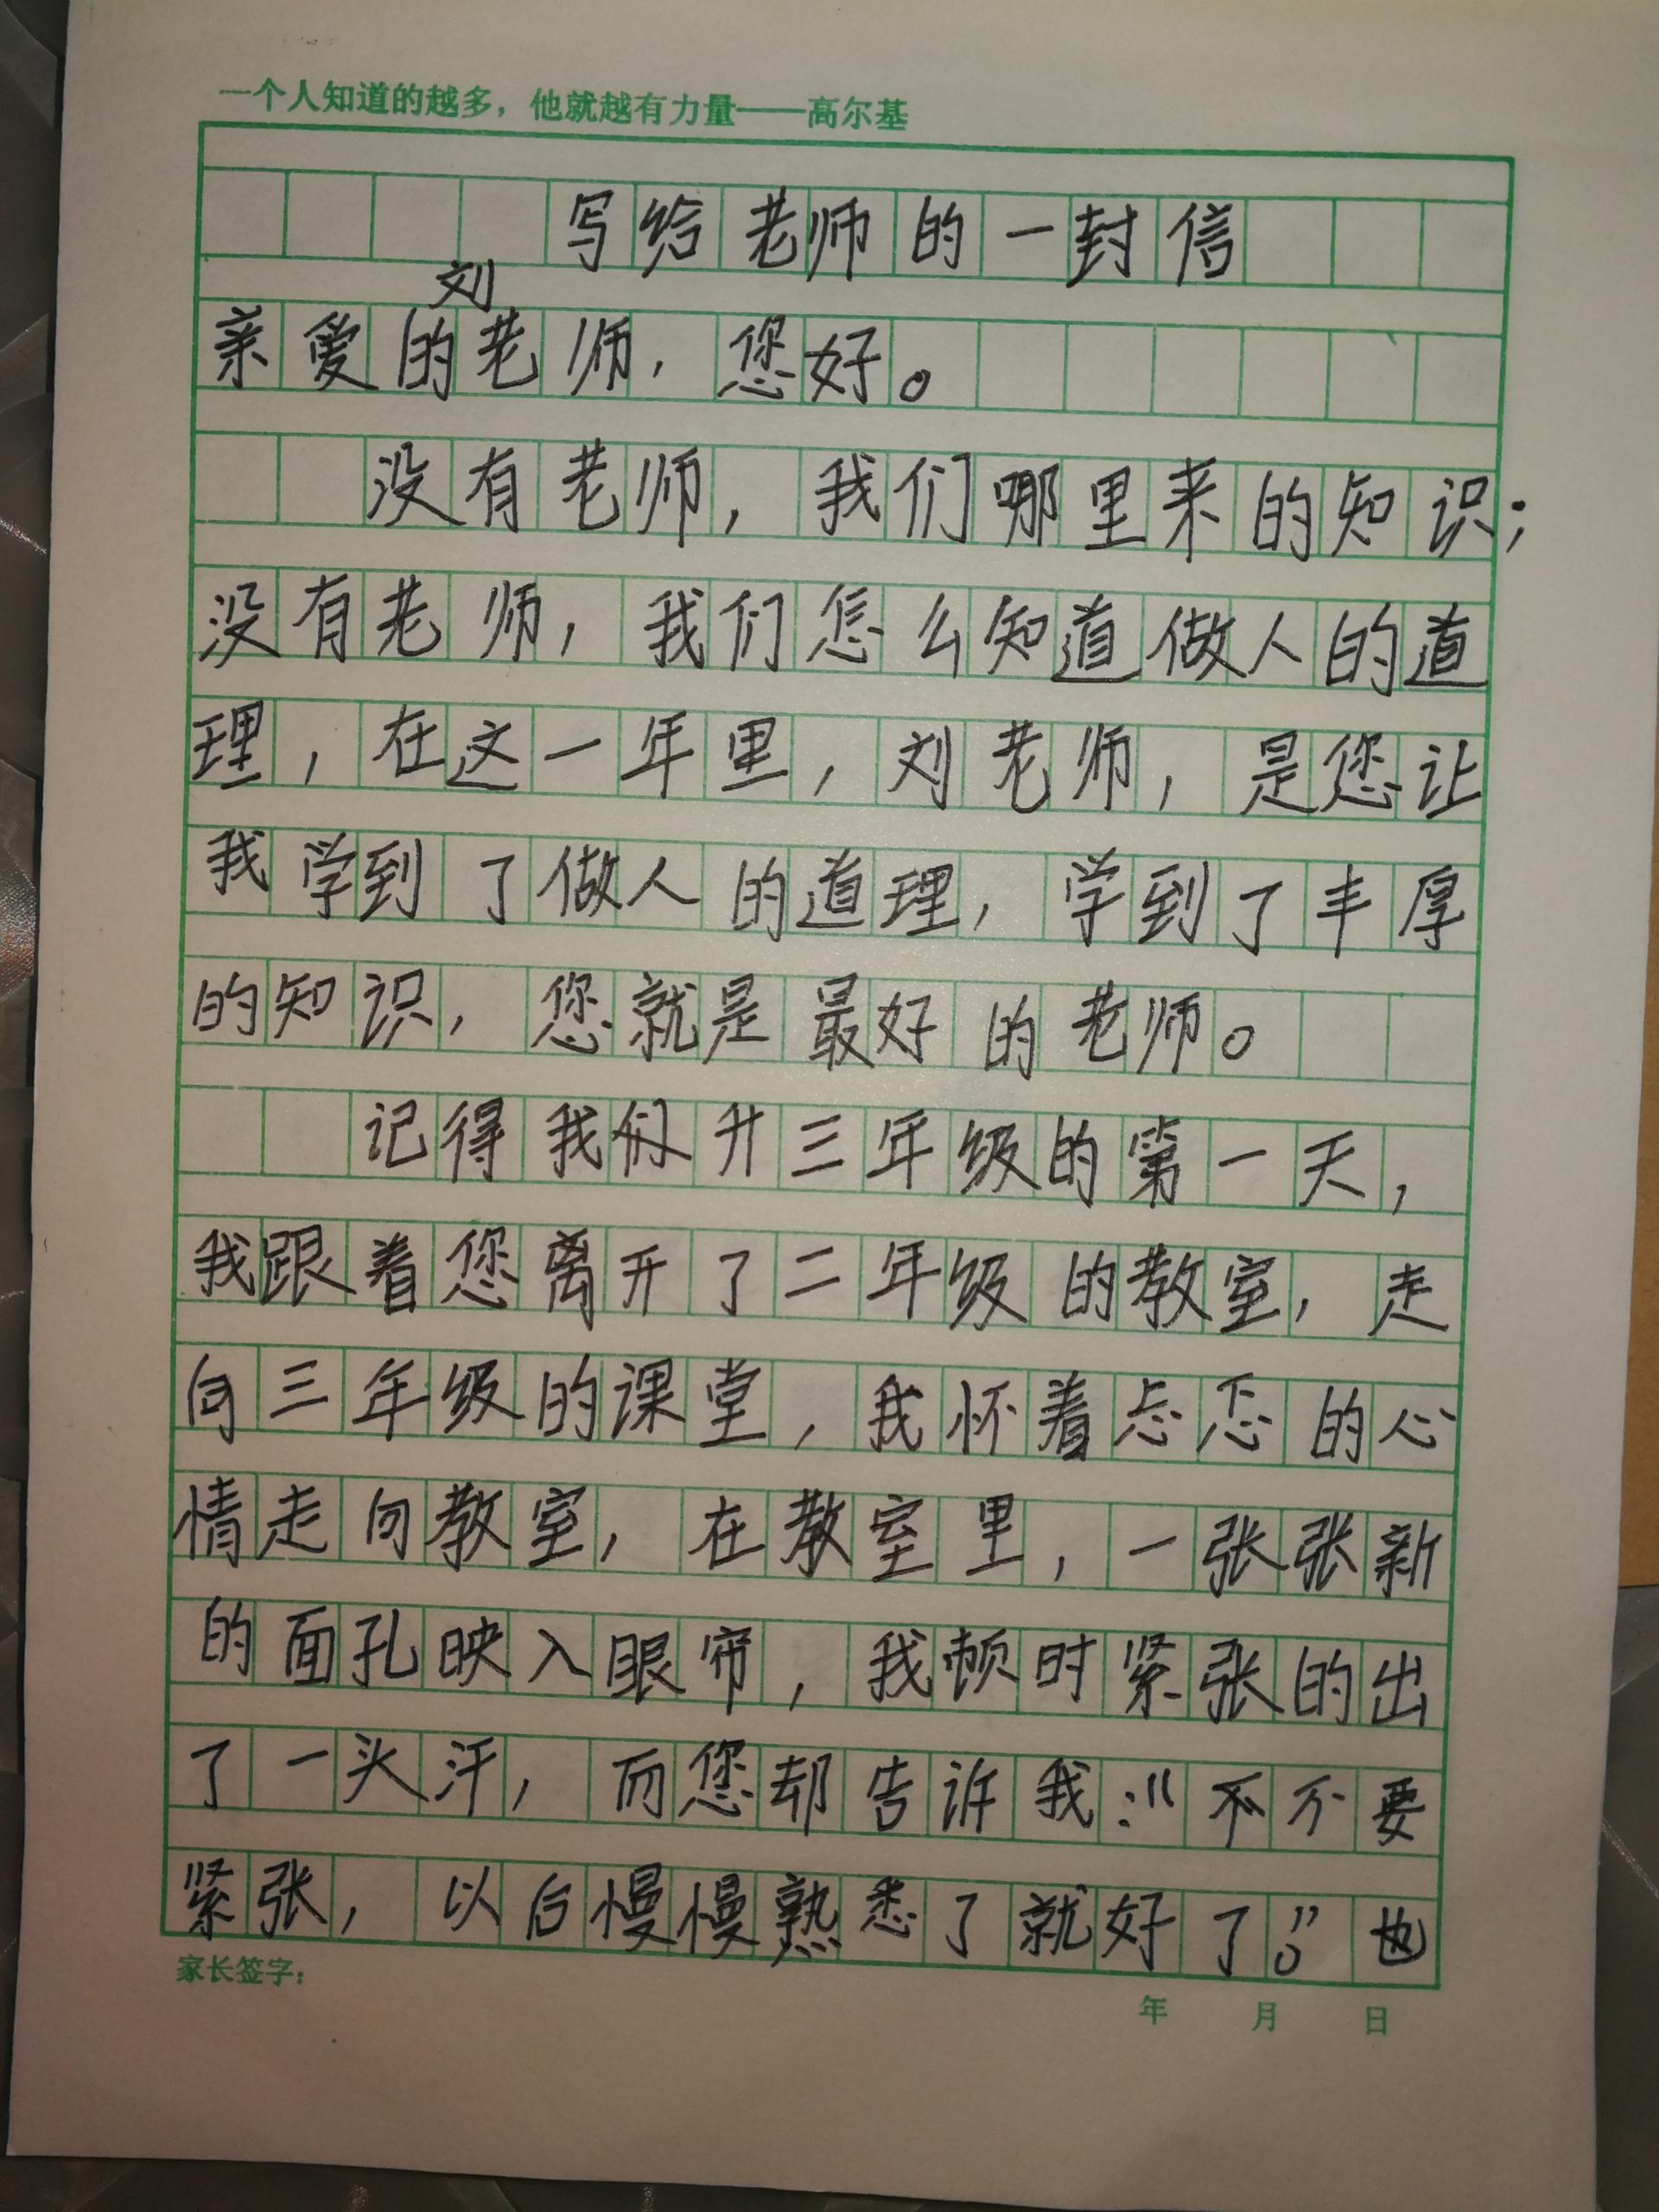 一个人知道的越多，他就越有力量——高尔基
写给老师的一封信
刘
亲爱的老师，您好。
没有老师，我们哪里来的知识；
没有老师，我们怎么知道做人的道
理，在这一年里，刘老师，是您让
我学到了做人的道理，学到了丰厚
的知识，您就是最好的老师。
记得我们升三年级的第一天，
我跟着您离开了二年级的教室，走
向三年级的课堂，我怀着忐忑的心
情走向教室，在教室里，一张张新
的面孔映入眼帘，我顿时紧张的出
了一头汗，而您却告诉我：“不不要
紧张，以后慢慢熟悉了就好了。”也
家长签字：
年 月 日